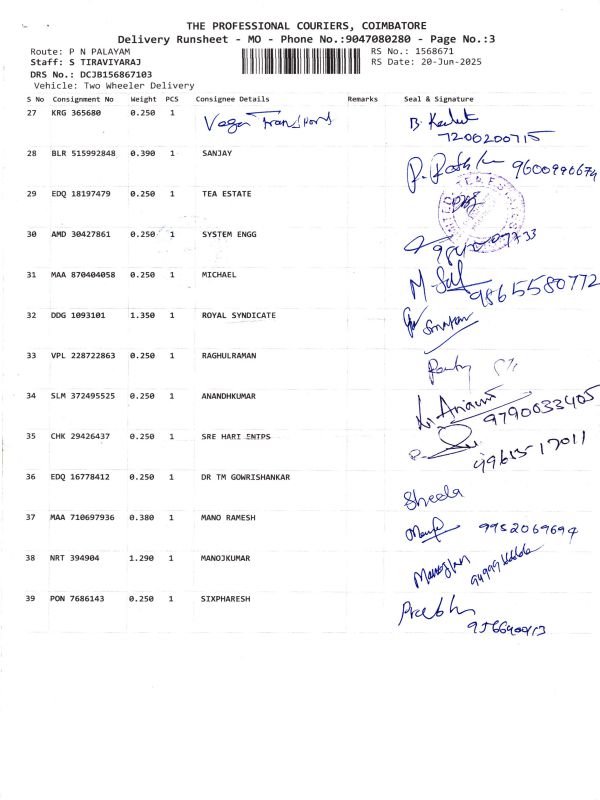 THE PROFESSIONAL COURIERS, COIMBATORE
Delivery Runsheet - MO - Phone No.:9047080280 - Page No.:3
Route: P N PALAYAM RS No.: 1568671
Staff: S TIRAVIYARAJ RS Date: 20-Jun-2025
DRS No.: DCJB156867103
Vehicle: Two Wheeler Delivery
S No Consignment No Weight PCS Consignee Details Remarks Seal & Signature
27 KRG 365680 0.250 1 Vega Transport
7200200715
28 BLR 515992848 0.390 1 SANJAY 9600996674
29 EDQ 18197479 0.250 1 TEA ESTATE
30 AMD 30427861 0.250 1 SYSTEM ENGG
31 MAA 870404058 0.250 1 MICHAEL 9865580772
32 DDG 1093101 1.350 1 ROYAL SYNDICATE
33 VPL 228722863 0.250 1 RAGHULRAMAN
34 SLM 372495525 0.250 1 ANANDHKUMAR 9790033405
35 CHK 29426437 0.250 1 SRE HARI ENTPS
36 EDQ 16778412 0.250 1 DR TM GOWRISHANKAR Sheela
37 MAA 710697936 0.380 1 MANO RAMESH 9952069694
38 NRT 394904 1.290 1 MANOJKUMAR
39 PON 7686143 0.250 1 SIXPHARESH